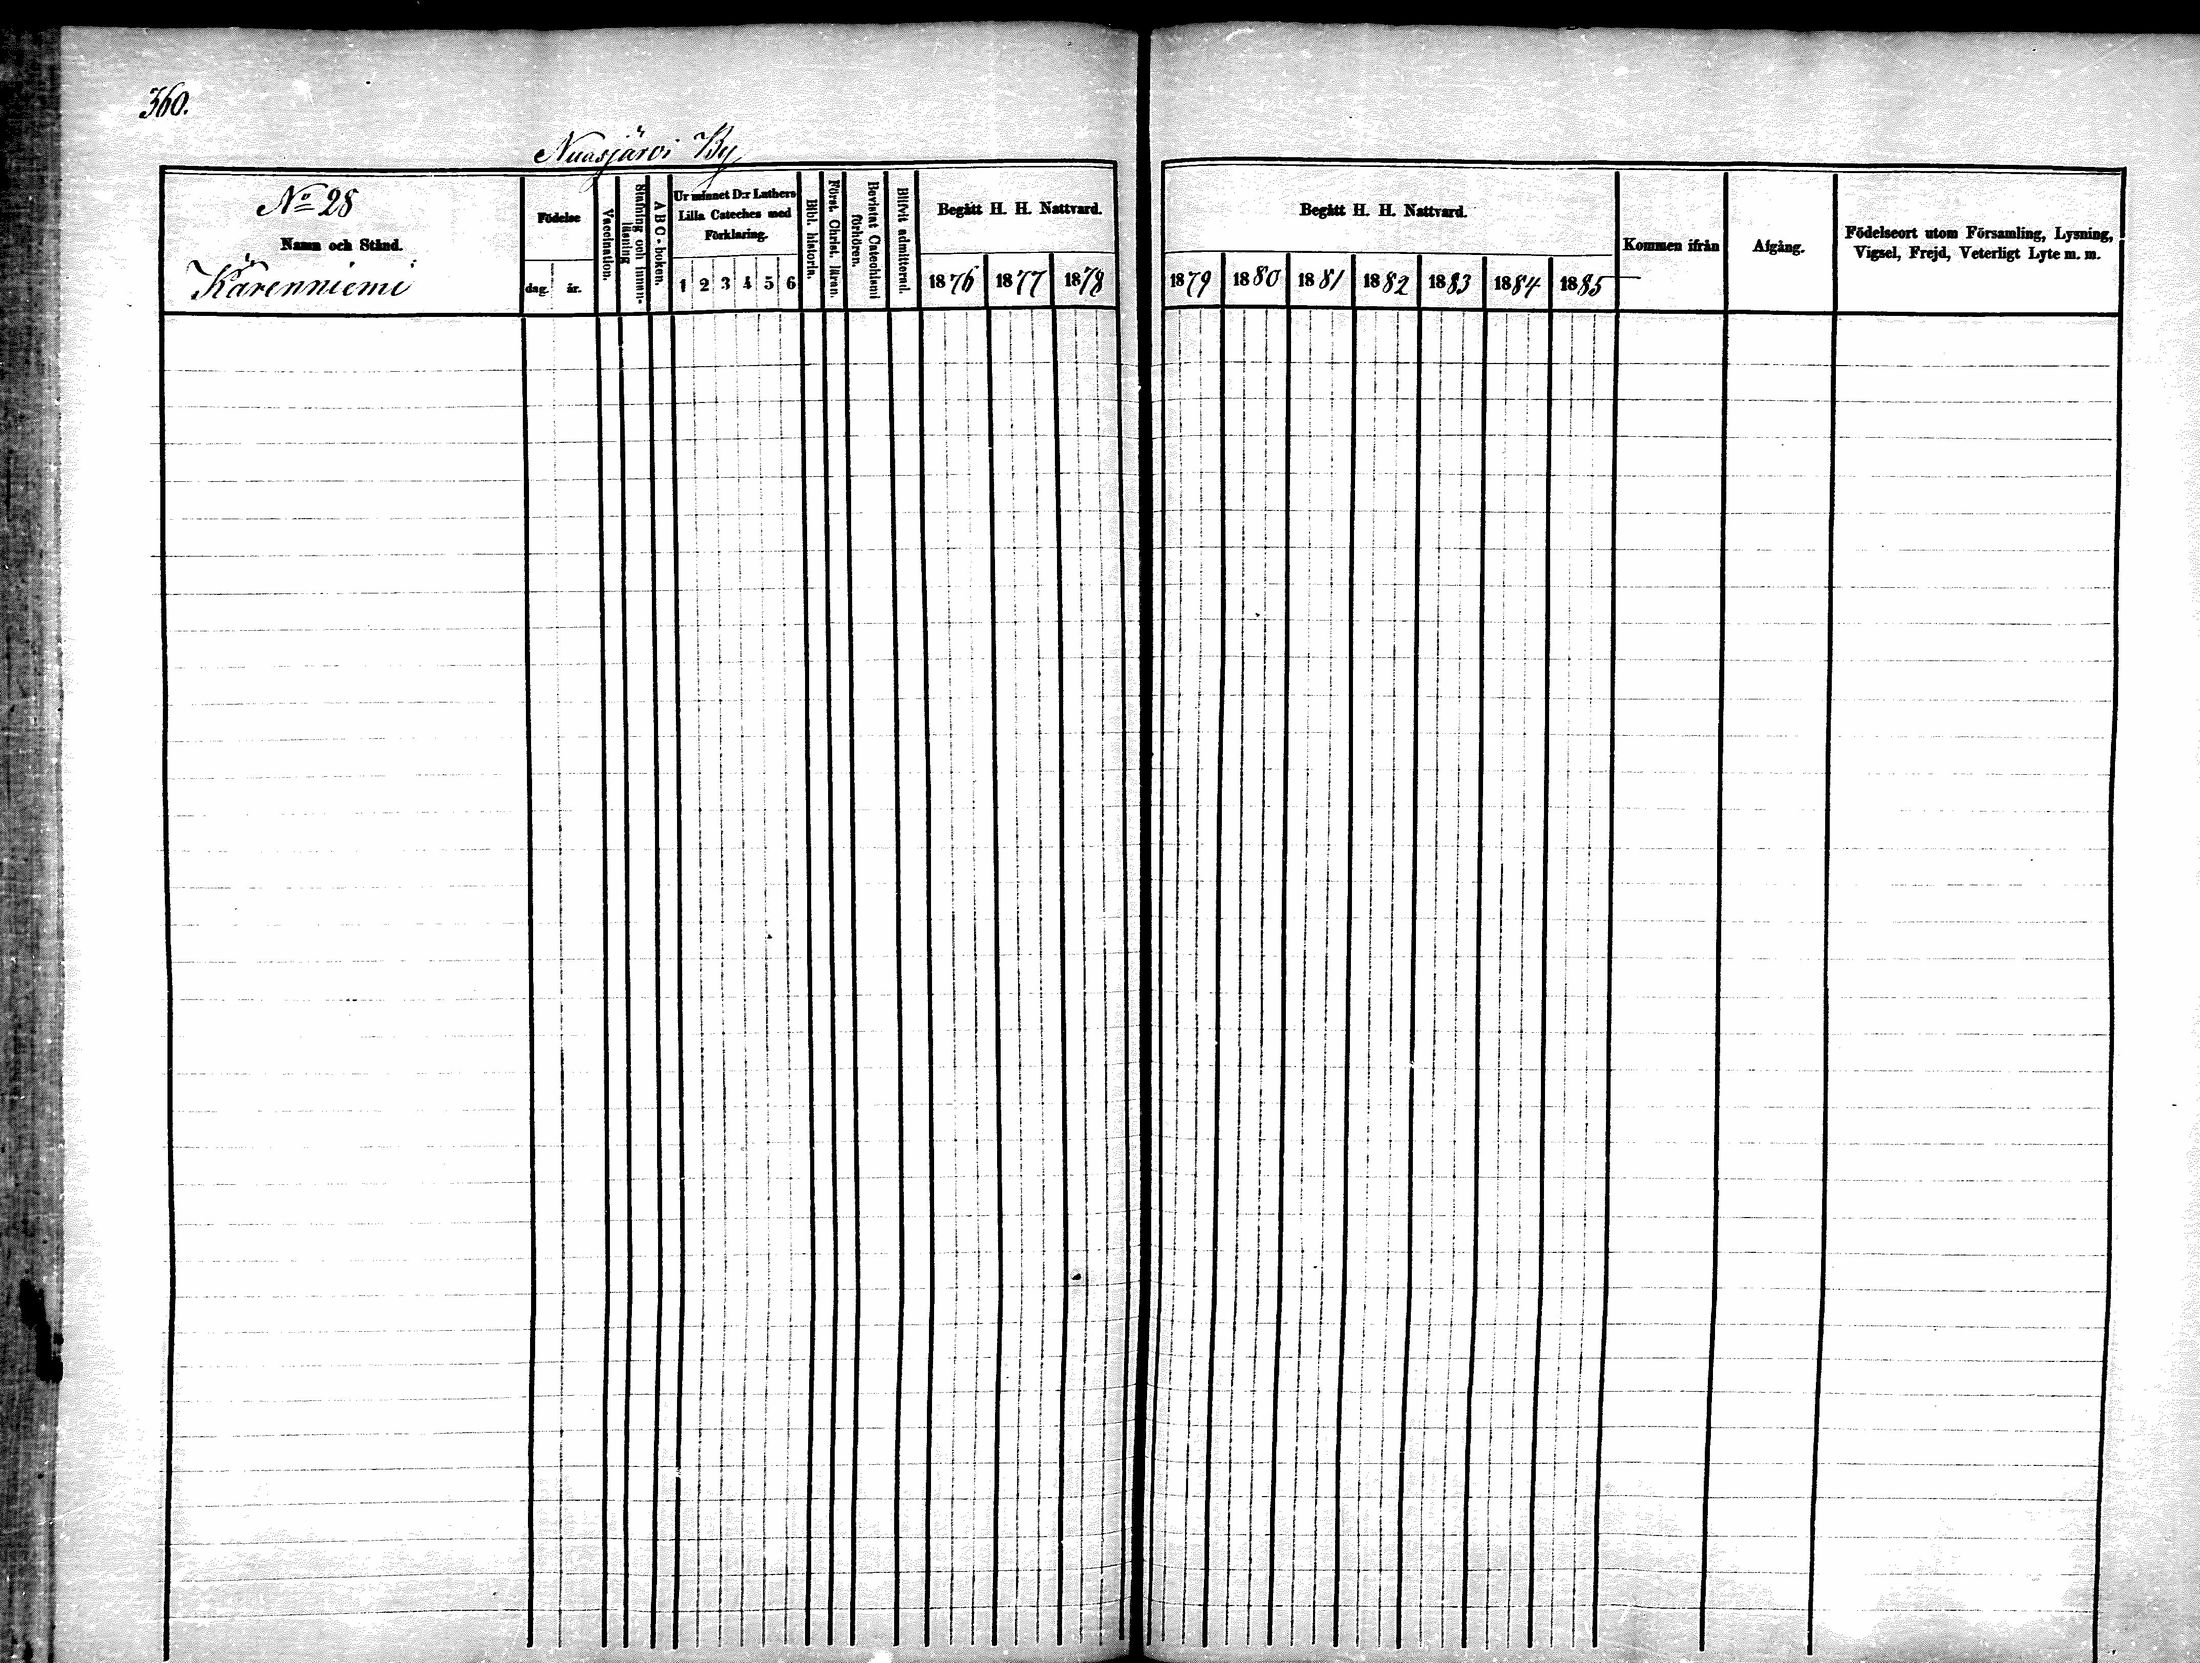 360.
Nuasjärvi By
No 28
Namn och Stånd.
Kärenniemi
Födelse
dag. år.
Vaccination.
Stafning och innan-
läsning
A B C-boken.
Ur minnet D:r Luthers
Lilla Cateches med
Förklaring.
1 2 3 4 5 6
Bibl. historia.
Först. Christ. läran.
Bevistat Catechismi
förhören.
Blifvit admitterad.
Begått H. H. Nattvard.
1876 1877 1878
Begått H. H. Nattvard.
1879 1880 1881 1882 1883 1884 1885
Kommen ifrån
Afgång.
Födelseort utom Församling, Lysning,
Vigsel, Frejd, Veterligt Lyte m. m.